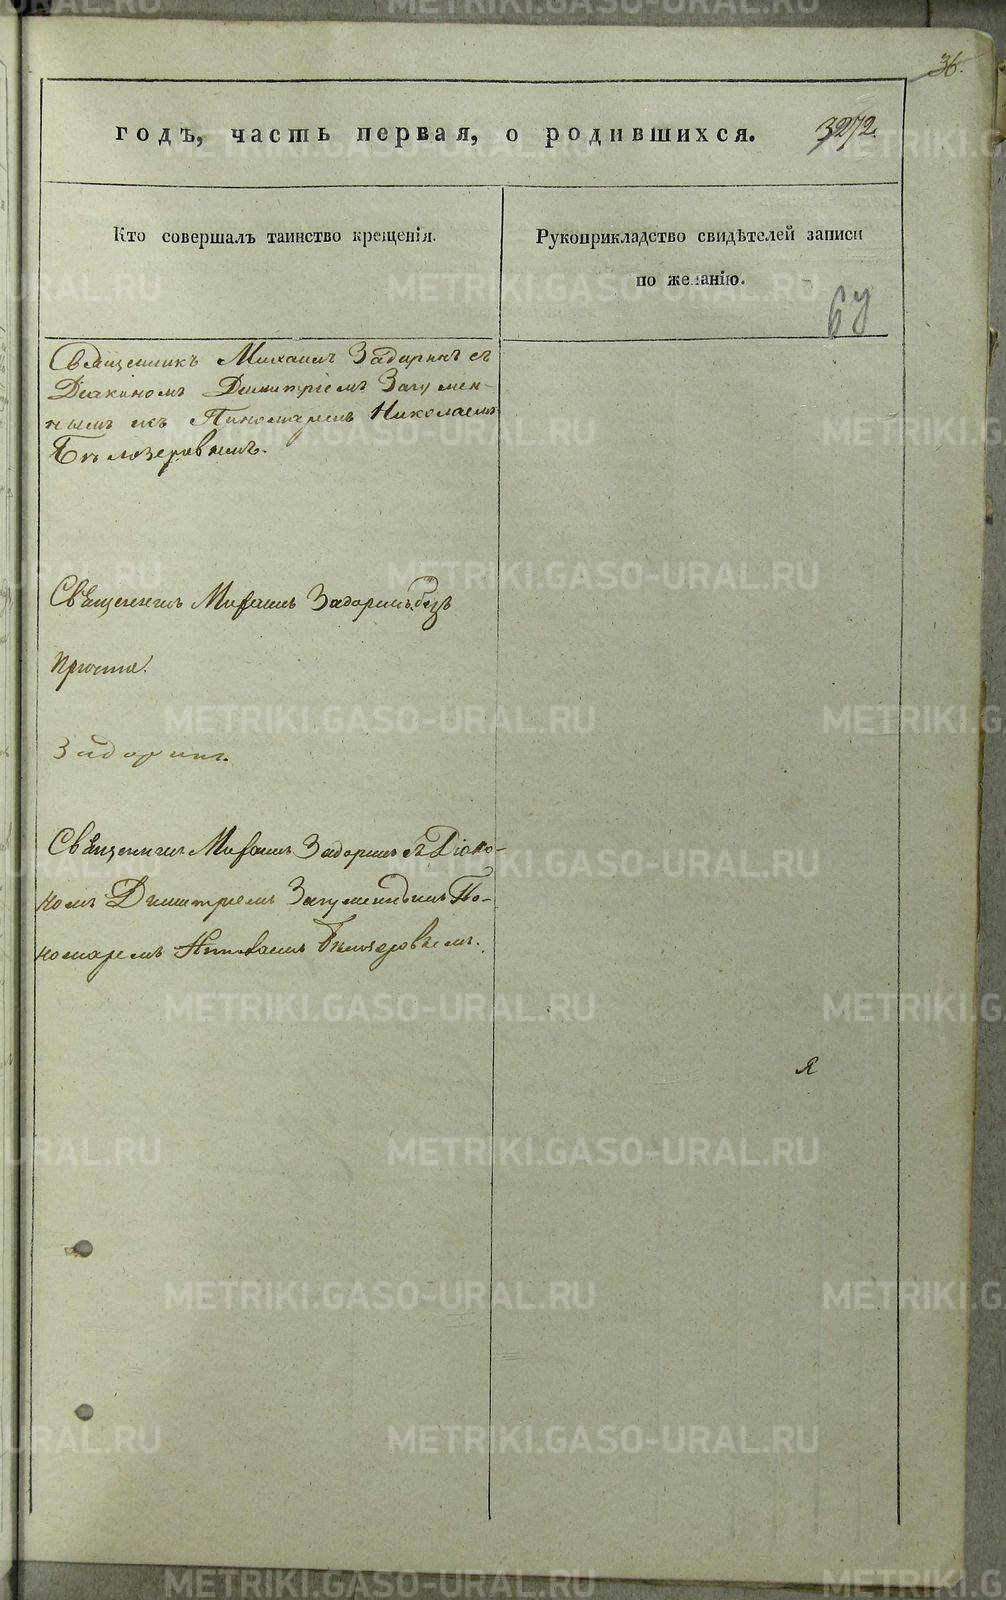 36.
годъ, часть первая, о родившихся.
3272.
Кто совершалъ таинство крещенія.
Рукоприкладство свидѣтелей записи
по желанію.
Священникъ Михаилъ Задоринъ съ
Діакономъ Димитріемъ Загумен-
нымъ и Пономаремъ Николаемъ
Бѣлозеровымъ.
Священникъ Михаилъ Задоринъ безъ
причта.
Задоринъ.
Священникъ Михаилъ Задоринъ съ Діако-
номъ Димитріемъ Загуменнымъ По-
номаремъ Николаемъ Бѣлозеровымъ.
METRIKI.GASO-URAL.RU